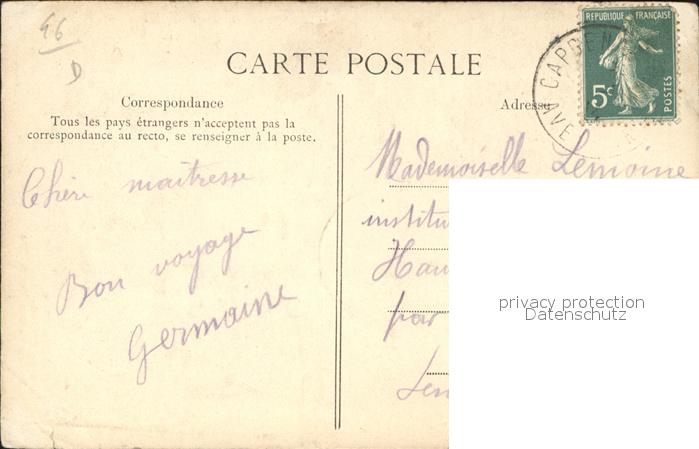 46
D
CARTE POSTALE
RÉPUBLIQUE FRANÇAISE
5c
POSTES
CAPDEN
AVE
Correspondance
Tous les pays étrangers n'acceptent pas la
correspondance au recto, se renseigner à la poste.
Adresse
Chère maitresse
Bon voyage
Germaine
Mademoiselle Lemoine
institu
Hau
par
privacy protection
Datenschutz